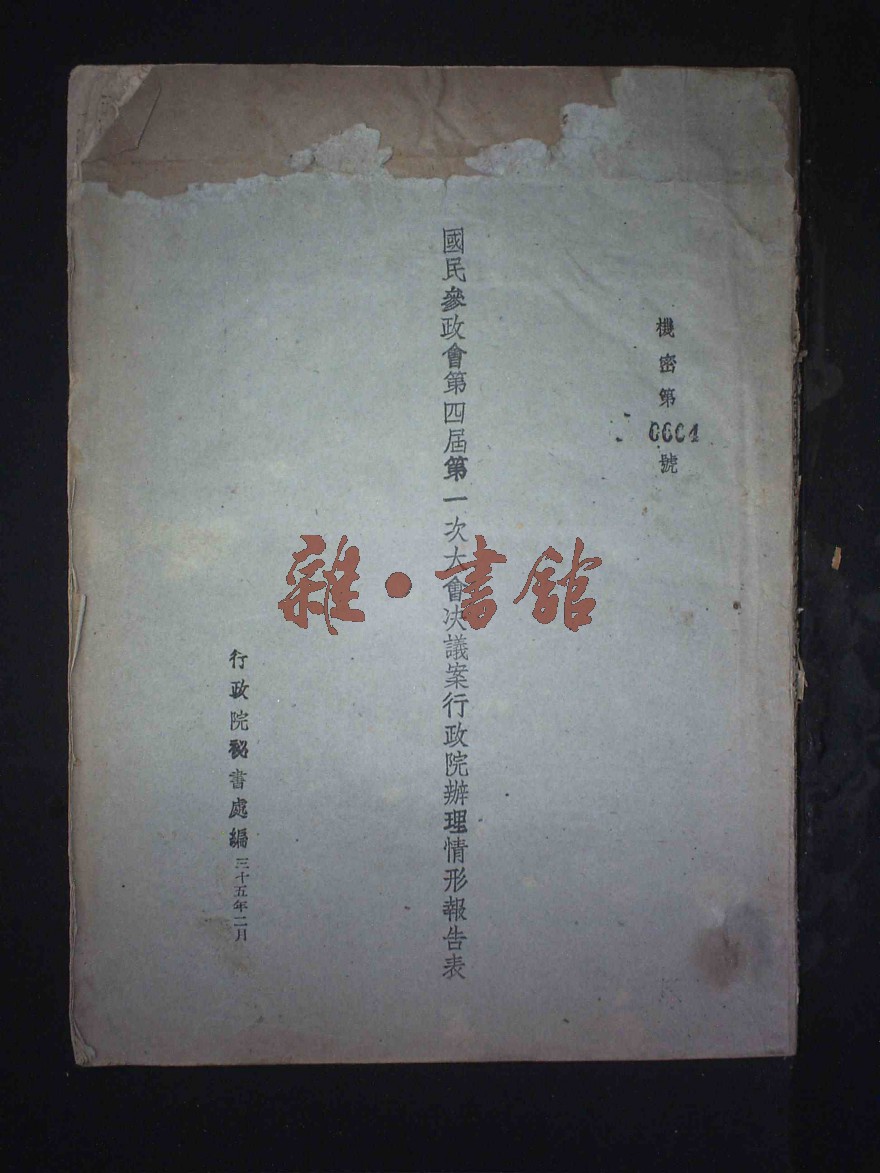 機密第0604號
國民參政會第四屆第一次大會决議案行政院辦理情形報告表
行政院秘書處編 三十五年二月
雜·書館